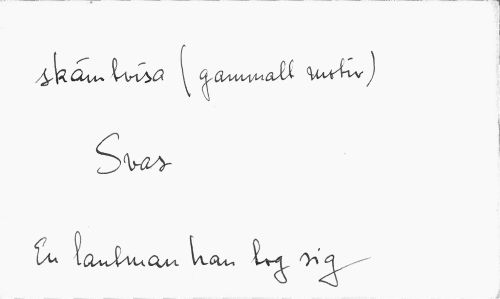 skämtvisa (gammalt motiv)
Svar
En lantman han tog sig